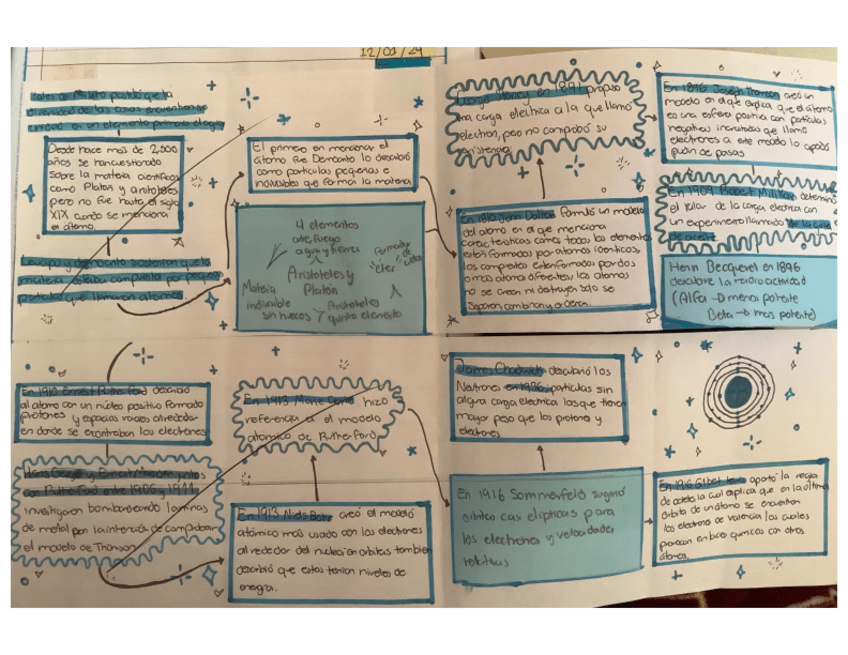 12/01/24
Tales de Mileto postuló que la
diversidad de las cosas encuentran su
unidad en un elemento primario el agua
Desde hace más de 2,500
años se han cuestionado
sobre la materia científicos
como Platón y aristoteles
pero no fue hasta el siglo
XIX cuando se menciona
el átomo.
Leucipo y democrito sostenian que la
materia estaba compuesta por pequeñas
particulas que llamaron atomos
El primero en mencionar el
átomo fue Democrito lo describió
como particulas pequeñas e
indivisibles que forma la materia
4 elementos
aire, fuego
agua y tierra
Formador
de
éter
Aristoteles y
Platón
Materia
indivisible
sin huecos
Aristoteles
quinto elemento
George Stoney en 1891 propuso
una carga electrica a la que llamó
electron, pero no comprobó su
existencia
En 1810 John Dalton Formuló un modelo
del atomo en el que menciona
caracteristicas como: todos los elementos
estan formados por atomos identicos,
los compuestos estan formados por dos
o mas atomos diferentes, los atomos
no se crean ni destruyen solo se
separan, combinan y ordenan.
En 1896 Joseph Thomson creó un
modelo en el que explica que el átomo
es una esfera positiva con partículas
negativas incrustadas que llamo
electrones a este modelo lo apodó
pudin de pasas
En 1909 Robert Millikan determinó
el valor de la carga electrica con
un experimento llamado de la gota
de aceite
Henri Becquerel en 1896
descubre la radioactividad
(Alfa → menos potente
Beta → mas potente)
En 1910 Ernest Rutherford describió
al atomo con un núcleo positivo formado
protones y espacios vacios alrededor
en donde se encontraban los electrones
Hans Geiger y Ernest Marsden juntos
con Rutherford entre 1906 y 1911
investigaron bombardeando laminas
de metal por la intención de comprobar
el modelo de Thomson
En 1913 Marie Curie hizo
referencia al modelo
atómico de Rutherford
En 1913 Niels Bohr creó el modelo
atómico mas usado con los electrones
al rededor del nucleo en orbitas tambien
describió que estos tenian niveles de
energia.
James Chadwick descubrió los
Neutrones en 1936, particulas sin
alguna carga electrica los que tienen
mayor peso que los protones y
electrones
En 1916 Sommerfeld sugirió
orbitas casi elipticas para
los electrones y velocidades
relativas
En 1916 Gilbet Lewis aportó la regla
de octeto, la cual explica que en la última
orbita de un átomo se encuentran
los electrones de valencia los cuales
participan en enlaces quimicos con otros
átomos.